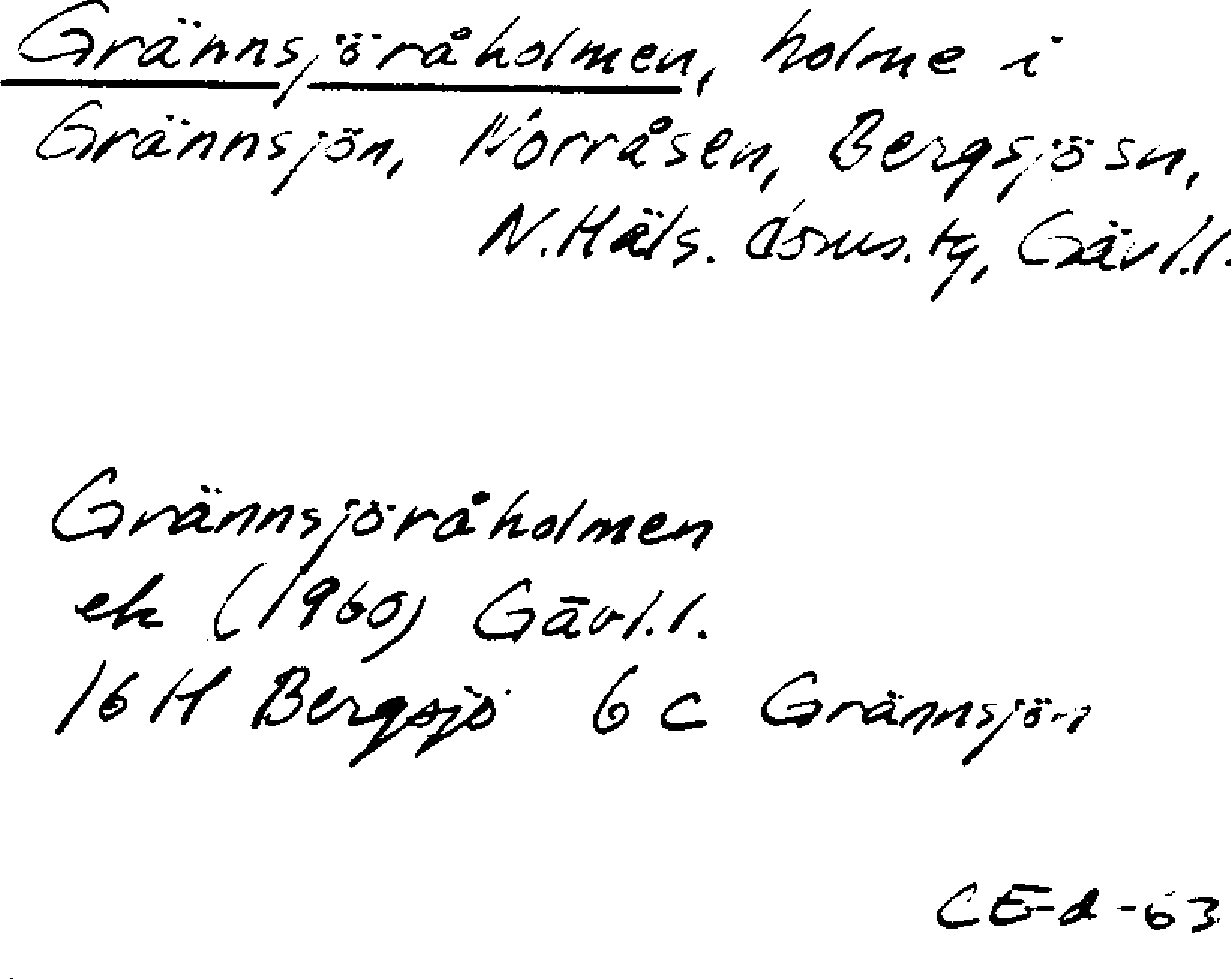 Grännsjöråholmen, holme i
Grännsjön, Norråsen, Bergsjö sn,
N.Häls. doms.tg, Gävl.l.
Grännsjöråholmen
ek (1960) Gävl.l.
16 H Bergsjö 6 c Grännsjön
CE-d-63